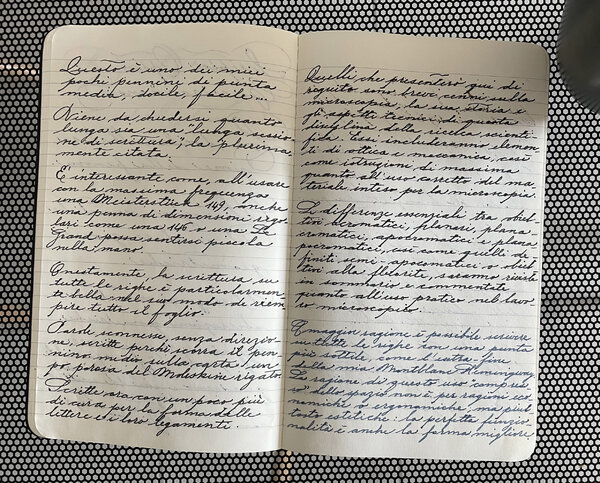 Questo è uno dei miei
pochi pennini di punta
media, docile, facile...
Viene da chiedersi quanto
lunga sia una "lunga sessio-
ne di scrittura", la plurima-
mente citata.
È interessante come, all'usare
con la massima frequenza
una Meisterstück 149, anche
una penna di dimensioni rego-
lari come una 146 o una Le
Grand possa sentirsi piccola
nella mano.
Onestamente, la scrittura su
tutte le righe è particolarmen-
te bella nel suo modo de riem-
pire tutto il foglio.
Parole sconnesse, senza direzio-
ne, scritte perché scorra il pen-
nino medio sulla carta un
po' porosa del Moleskine rigato.
Scritte ora con un poco più
di cura per la forma delle
lettere e i loro legamenti.
Quelli che presenterò qui di
seguito sono brevi cenni sulla
microscopia, la sua storia e
gli aspetti tecnici di questa
disciplina della ricerca scienti-
fica. Essa includeranno elemen-
ti di ottica e meccanica, così
come istruzioni di massima
quanto all'uso corretto del ma-
teriale inteso per la microscopia.
Le differenze essenziali tra obiet-
tivi acromatici, planari, plana
cromatici, apocromatici e plana
pocromatici, così come quelli de-
finiti semi-apocromatici o obiet-
tivi alla fluorite, saranno
in sommario e commentate
quanto all'uso pratico nel lavo
ro microscopico.
A maggior ragione è possibile scrivere
su tutte le righe con una punta
più sottile, come l'extra fine
della mia Montblanc Hemingway.
La ragione di questo uso "compres-
so" dello spazio non è per ragioni eco-
nomiche o ergonomiche, ma piut-
tosto estetiche: la perfetta funzio-
nalità è anche la forma migliore.